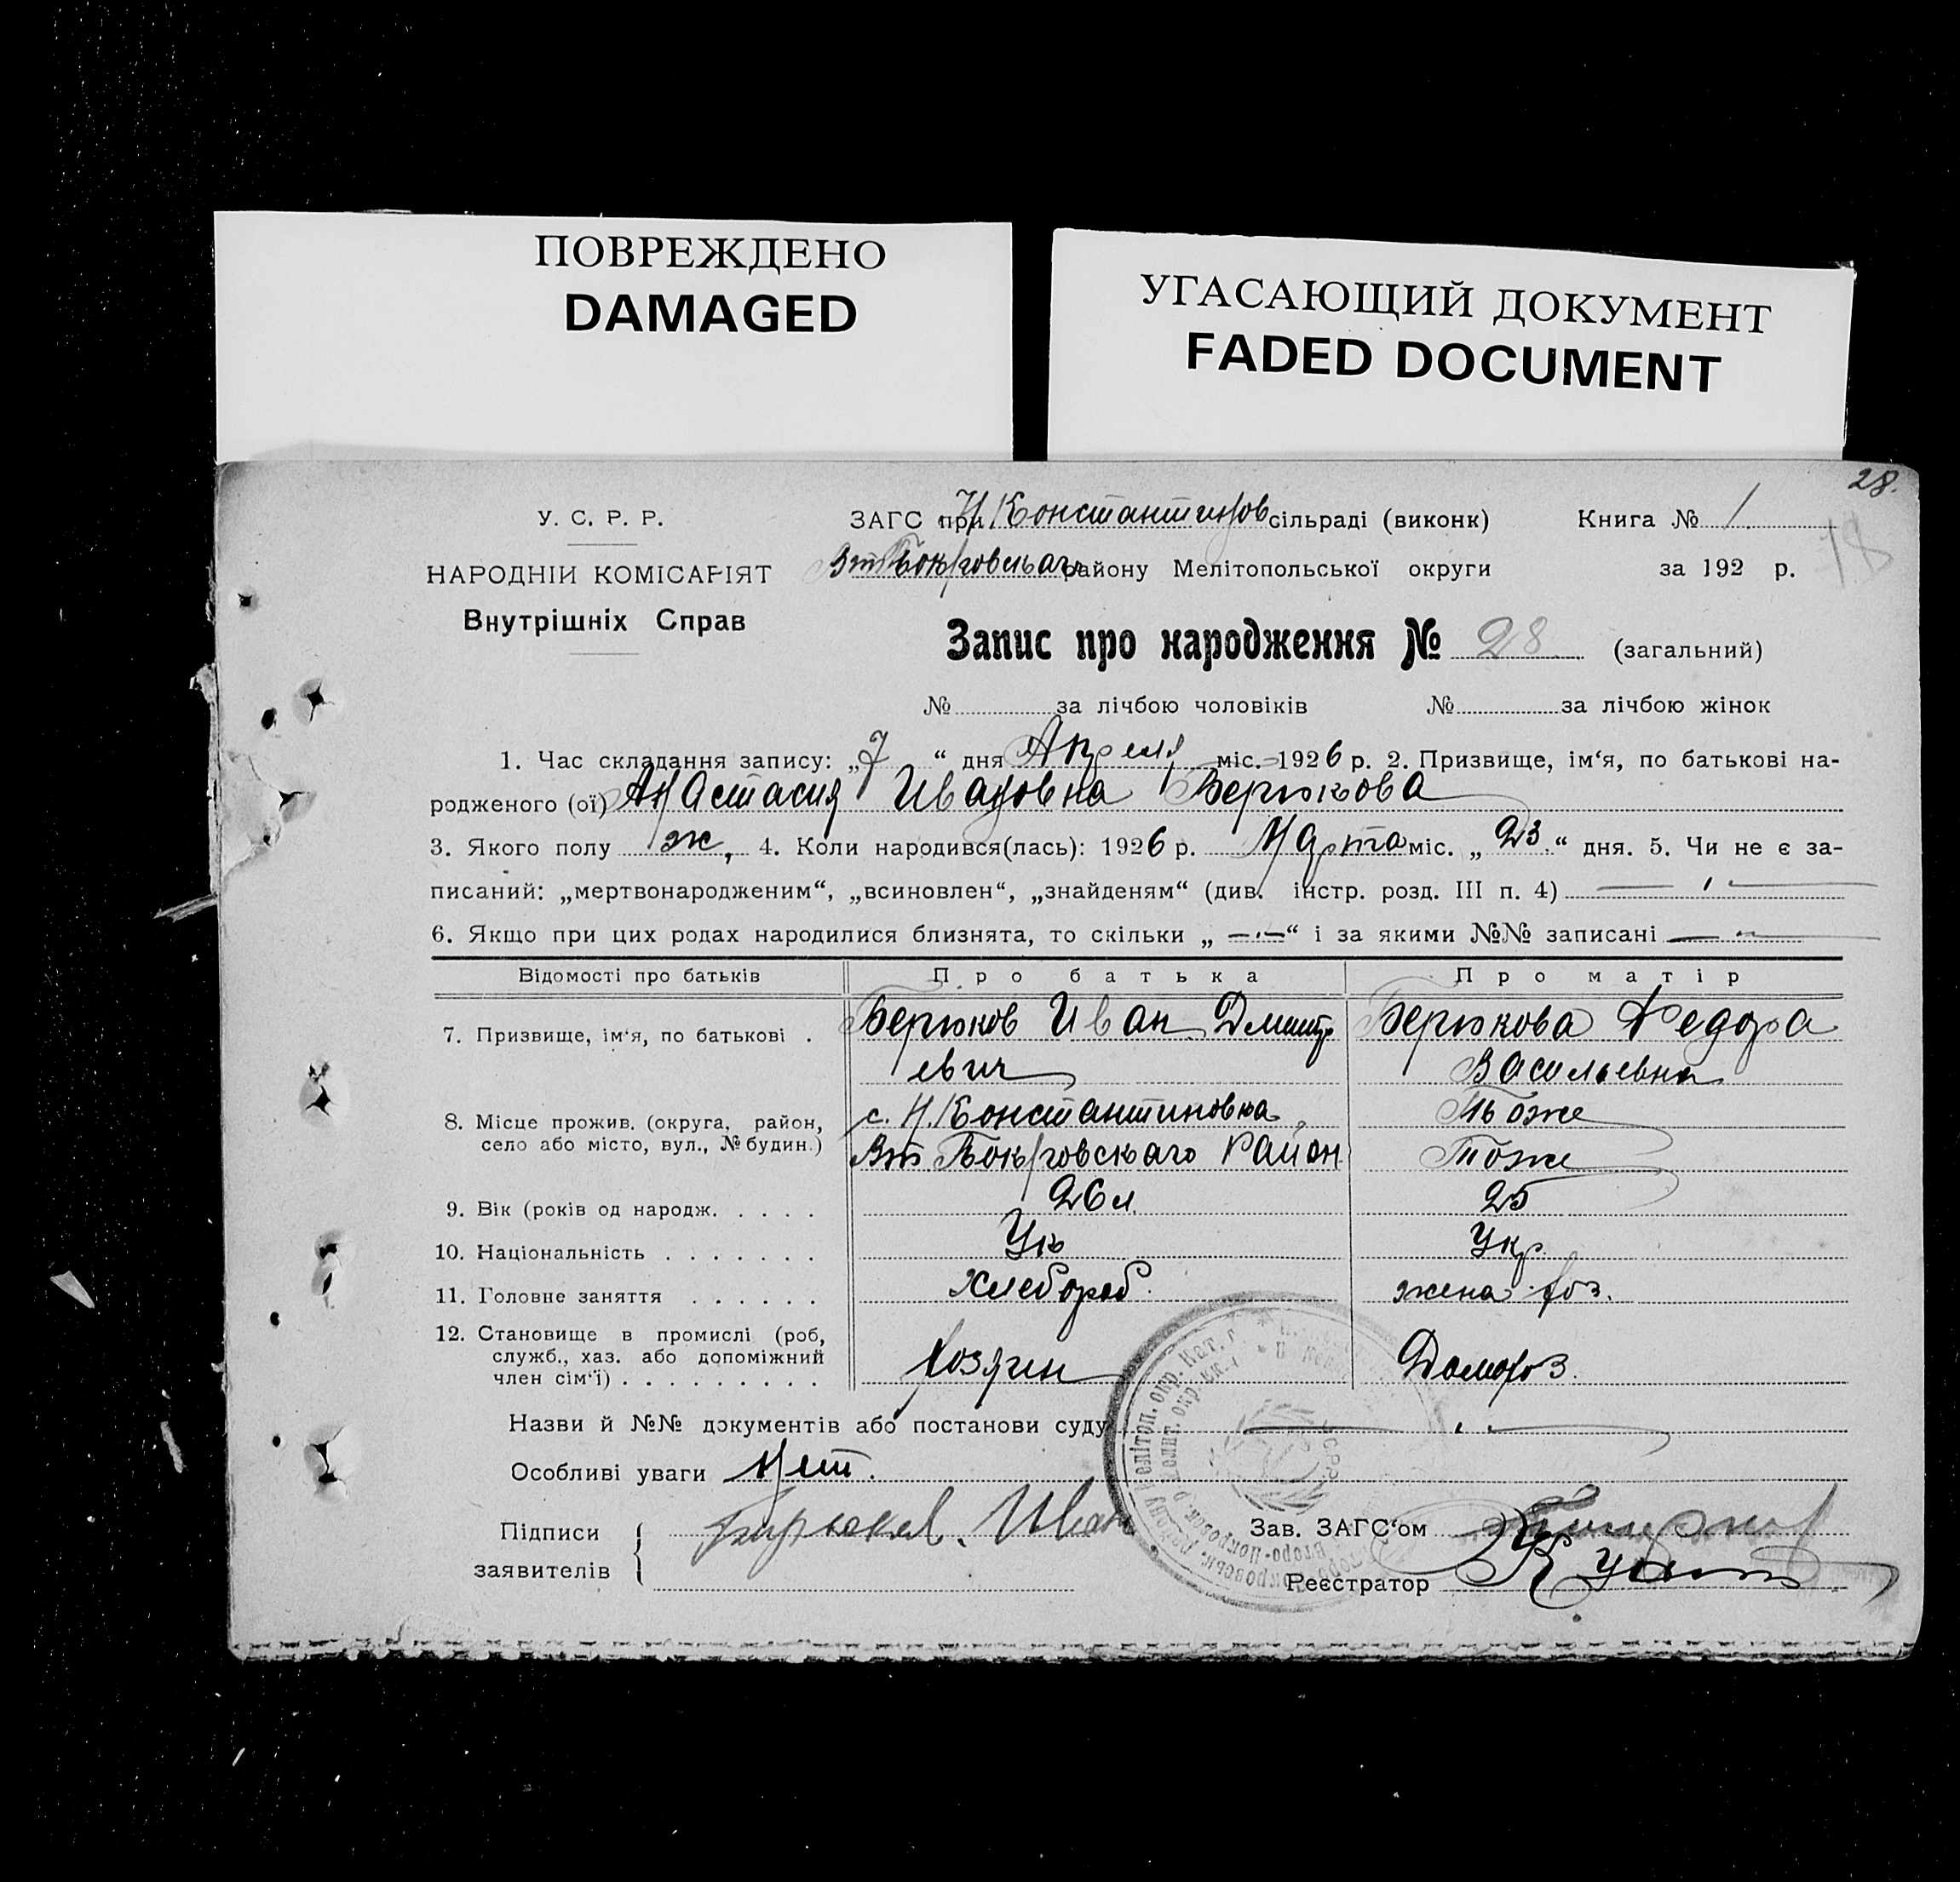 ПОВРЕЖДЕНО
DAMAGED
УГАСАЮЩИЙ ДОКУМЕНТ
FADED DOCUMENT
28.
У. С. Р. Р.
НАРОДНІЙ КОМІСАРІЯТ
Внутрішніх Справ
ЗАГС при Н Константинов сільраді (виконк) Книга № 1.
18
Вт Покровськаго району Мелітопольської округи за 192 р.
Запис про народження № 28 (загальний)
№ за лічбою чоловіків № за лічбою жінок
1. Час складання запису: „7 “ дня Апреля міс. 1926 р. 2. Призвище, ім‘я, по батькові на-
родженого (ої) Анастасия Ивановна Берюкова
3. Якого полу ж, 4. Коли народився(лась): 1926 р. Марта міс. „ 23. “ дня. 5. Чи не є за-
писаний: „мертвонародженим“, „всиновлен“, „знайденям“ (див. інстр. розд. III п. 4)
6. Якщо при цих родах народилися близнята, то скільки „ —„— “ і за якими №№ записані — „ —
Відомості про батьків Про батька Про матір
7. Призвище, ім‘я, по батькові . Берюков Иван Дмитр Берюкова Федора
евич Васильевна
8. Місце прожив. (округа, район, с. Н. Константиновка, Тоже
село або місто, вул., № будин.) Вт Покровскаго Район Тоже
9. Вік (років од народж. . . . . 26 л. 25
10. Національність . . . . . . Ук Укр.
11. Головне заняття . . . . . . Хлебороб. жена хоз.
12. Становище в промислі (роб,
служб., хаз. або допоміжний
член сім‘ї) . . . . . . . . . Хозяин Домохоз.
Назви й №№ документів або постанови суду
Особливі уваги Нет.
Підписи Бирюков. Иван Зав. ЗАГС‘ом
заявителів Реєстратор